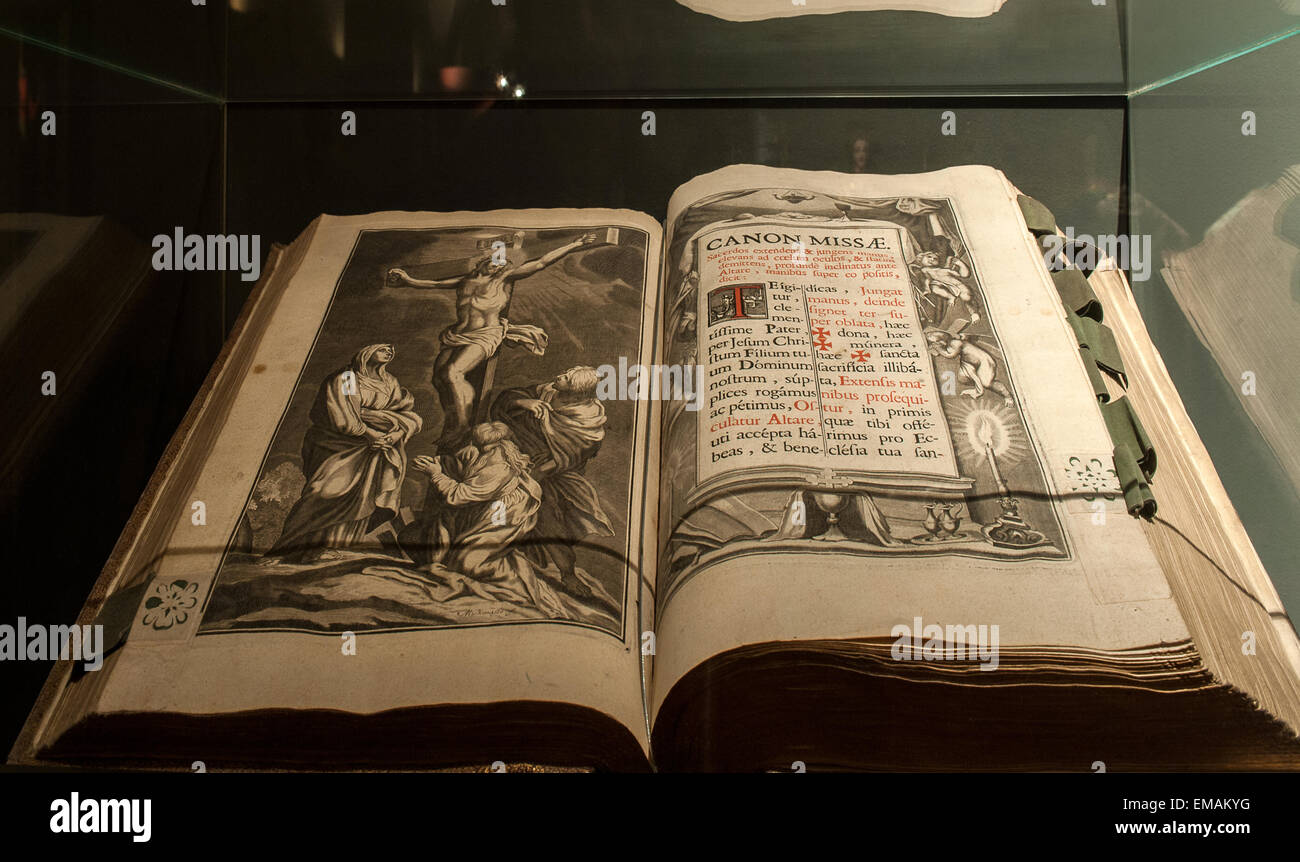 CANON MISSÆ.
Sacerdos extendens & jungens manus,
elevans ad cœlum oculos, & statim
demittens, profundè inclinatus ante
Altare, manibus super eo positis,
dicit:
TE igi-
tur,
cle-
men-
tissime Pater,
per Jesum Chri-
stum Filium tu-
um Dóminum
nostrum, súp-
plices rogámus
ac pétimus, Os-
culatur Altare,
uti accépta há-
beas, & bene-
dicas, Jungat
manus, deinde
signet ter su-
per oblata, hæc
✠ dona, hæc
✠ múnera,
hæc ✠ sancta
sacrificia illibá-
ta, Extensis ma-
nibus prosequi-
tur, in primis
quæ tibi offé-
rimus pro Ec-
clésia tua san-
alamy
alamy
alamy
a
a
a
a
a
a
a
a
a
a
alamy
Image ID: EMAKYG
www.alamy.com